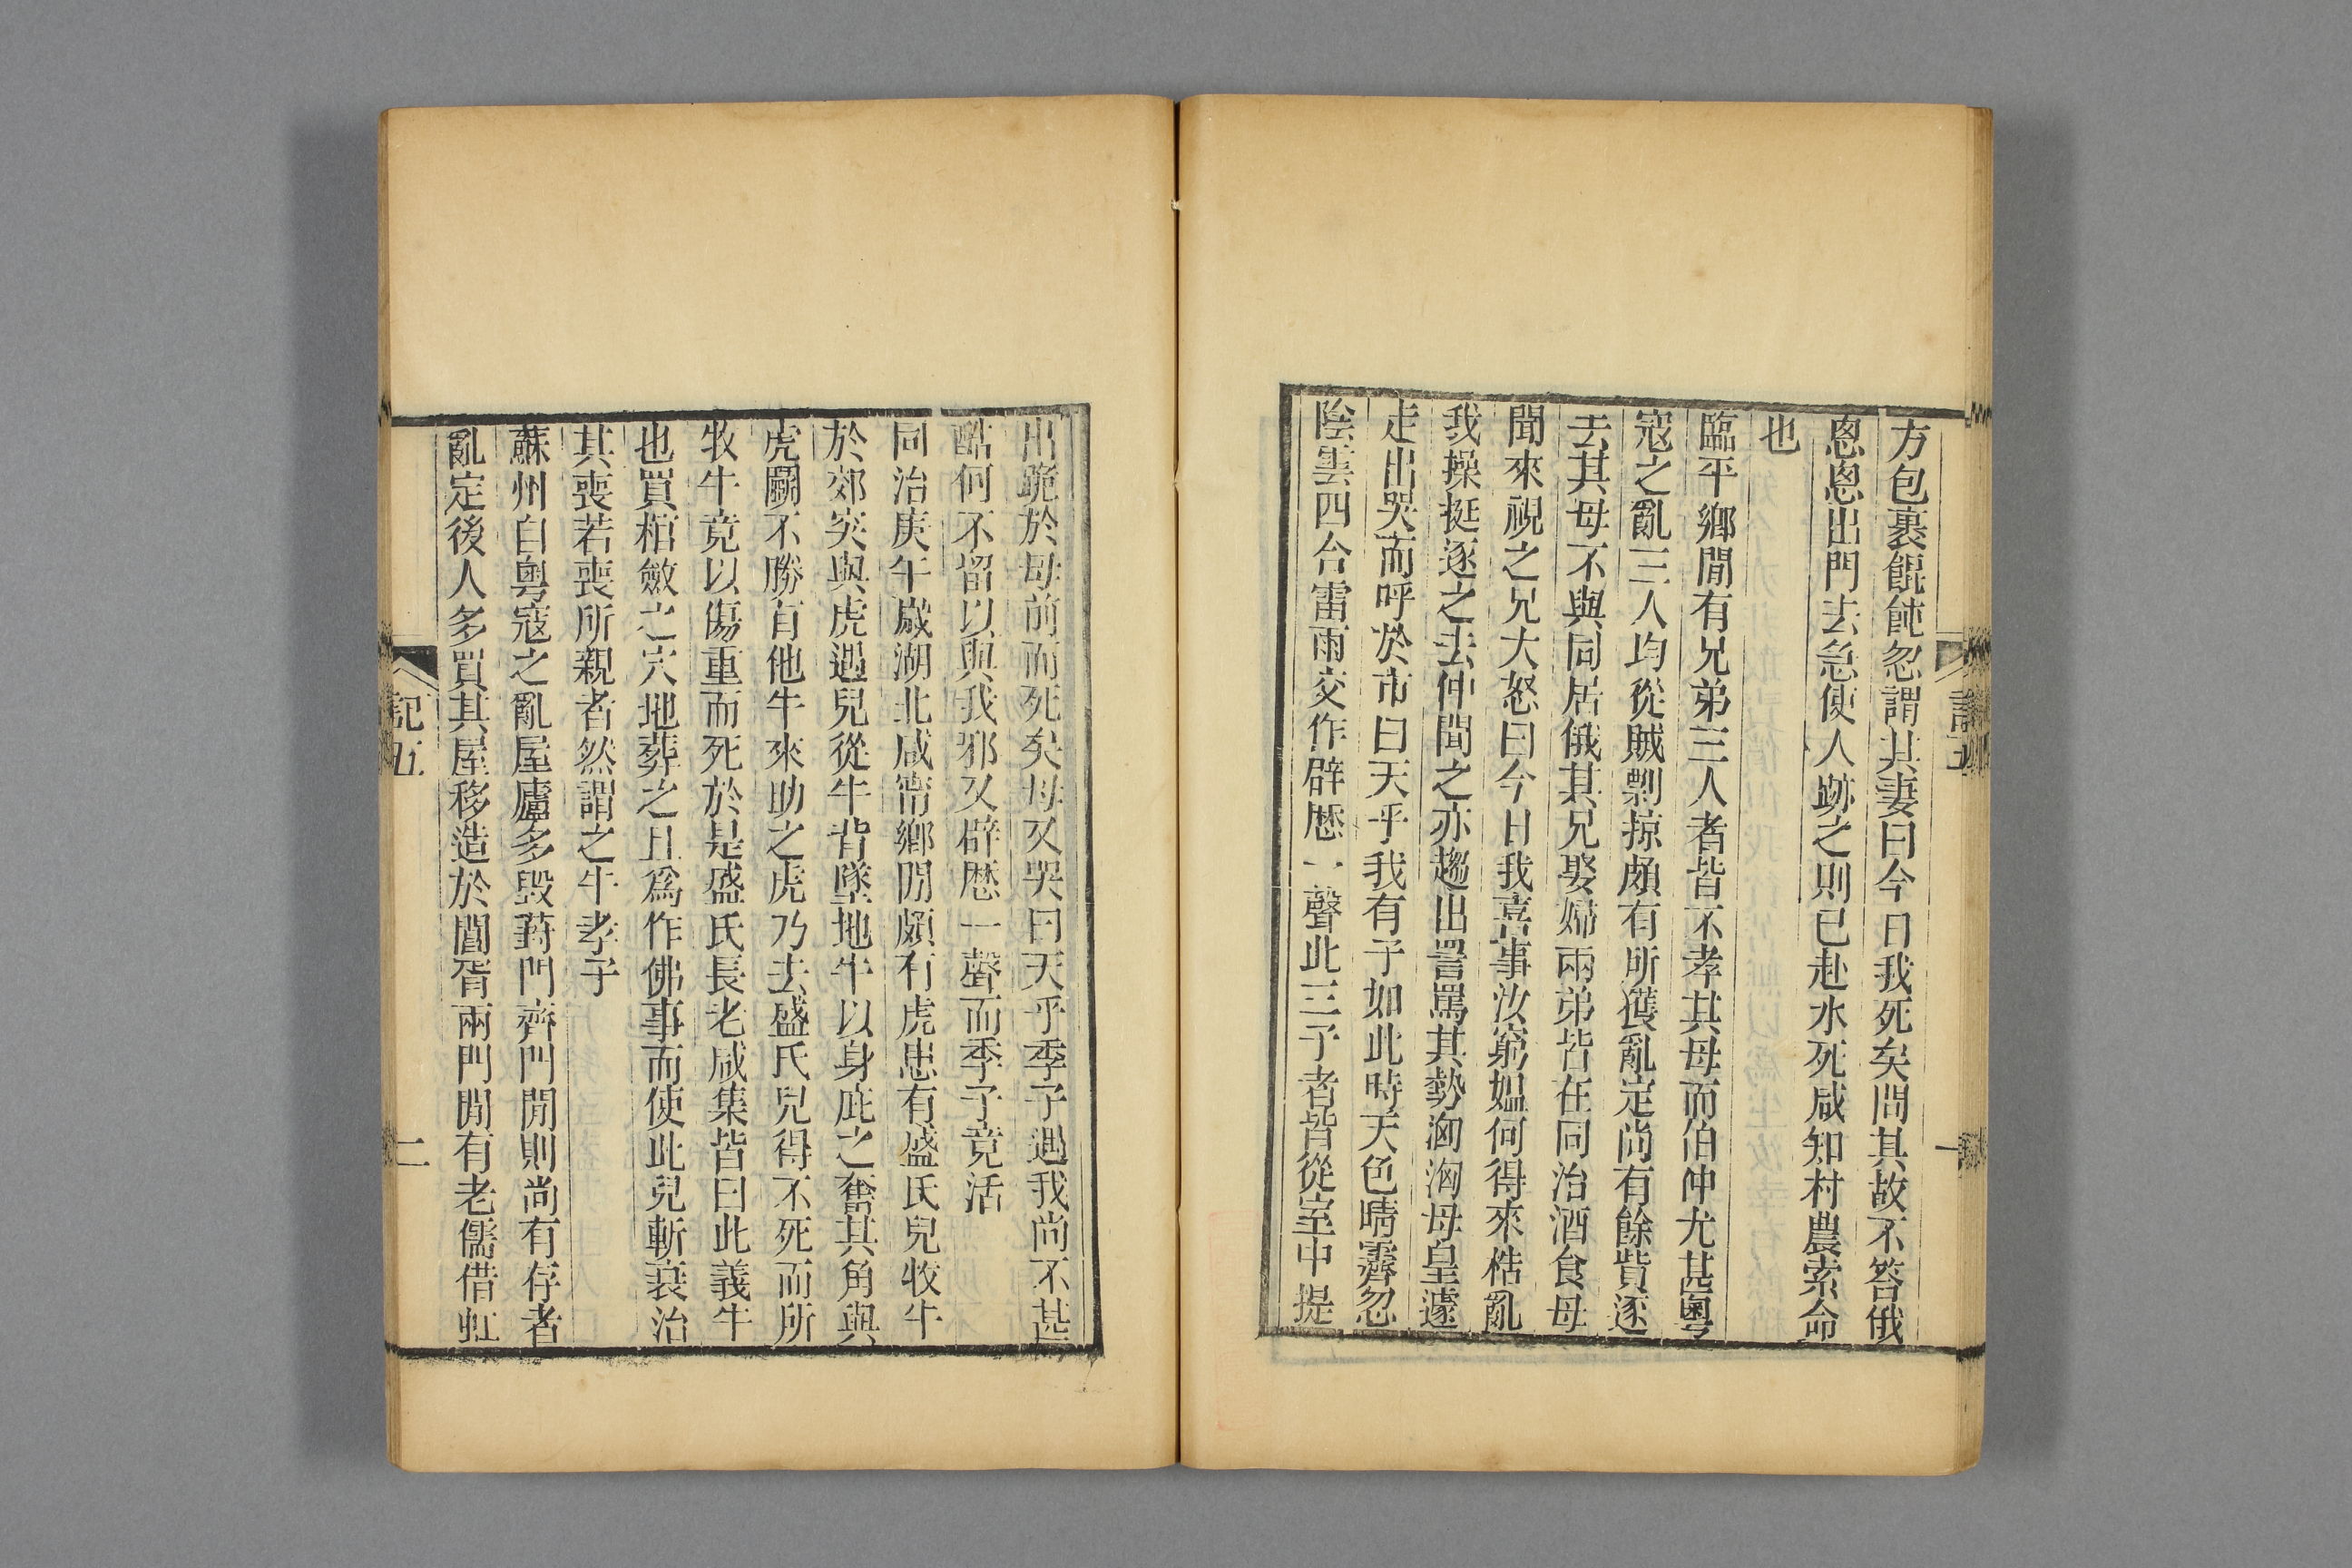 方包裹餛飩忽謂其妻曰今日我死矣問其故不答俄
悤悤出門去急使人跡之則已赴水死咸知村農索命
也
臨平鄉閒有兄弟三人者皆不孝其母而伯仲尤甚粵
寇之亂三人均從賊剽掠頗有所獲亂定尚有餘貲逐
去其母不與同居俄其兄娶婦兩弟皆在同治酒食母
聞來視之兄大怒曰今日我喜事汝窮媼何得來梏亂
我操挺逐之去仲聞之亦趨出詈罵其勢洶洶母皇遽
走出哭而呼於市曰天乎我有子如此時天色晴霽忽
陰雲四合雷雨交作辟歷一聲此三子者皆從室中提
出跪於母前而死矣母又哭曰天乎季子遇我尚不甚
酷何不留以與我邪又辟歷一聲而季子竟活
同治庚午歲湖北咸甯鄉閒頗有虎患有盛氏兒牧牛
於郊突與虎遇兒從牛背墜地牛以身庇之奮其角與
虎鬭不勝有他牛來助之虎乃去盛氏兒得不死而所
牧牛竟以傷重而死於是盛氏長老咸集皆曰此義牛
也買棺斂之穴地葬之且爲作佛事而使此兒斬衰治
其喪若喪所親者然謂之牛孝子
蘇州自粵寇之亂屋廬多毀葑門齊門閒則尚有存者
亂定後人多買其屋移造於閶胥兩門閒有老儒借虹
記五
二